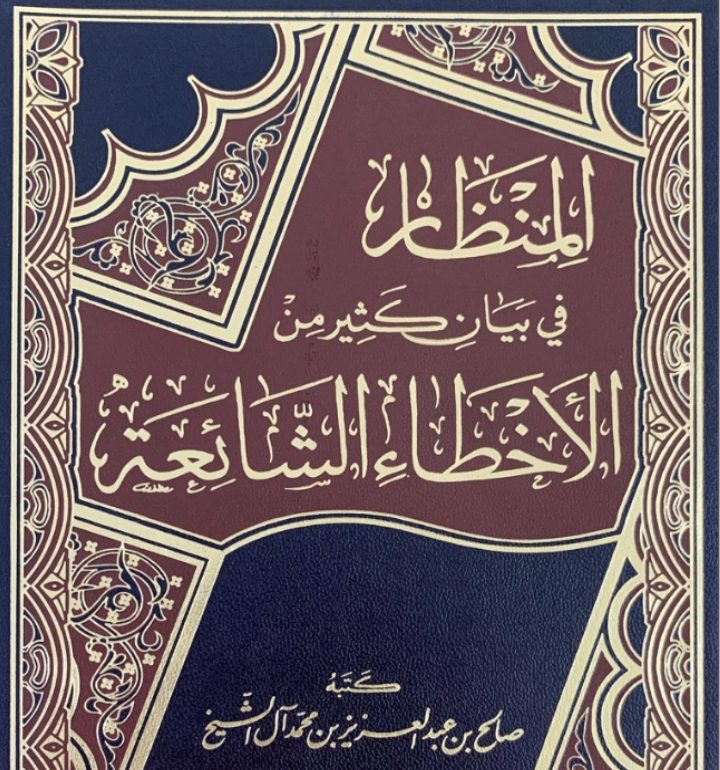 المِنْظَارُ
في بَيَانِ كَثِيرٍ مِنَ
الأَخْطَاءِ الشَّائِعَةِ
كَتَبَهُ
صالح بن عبد العزيز بن محمد آل الشيخ